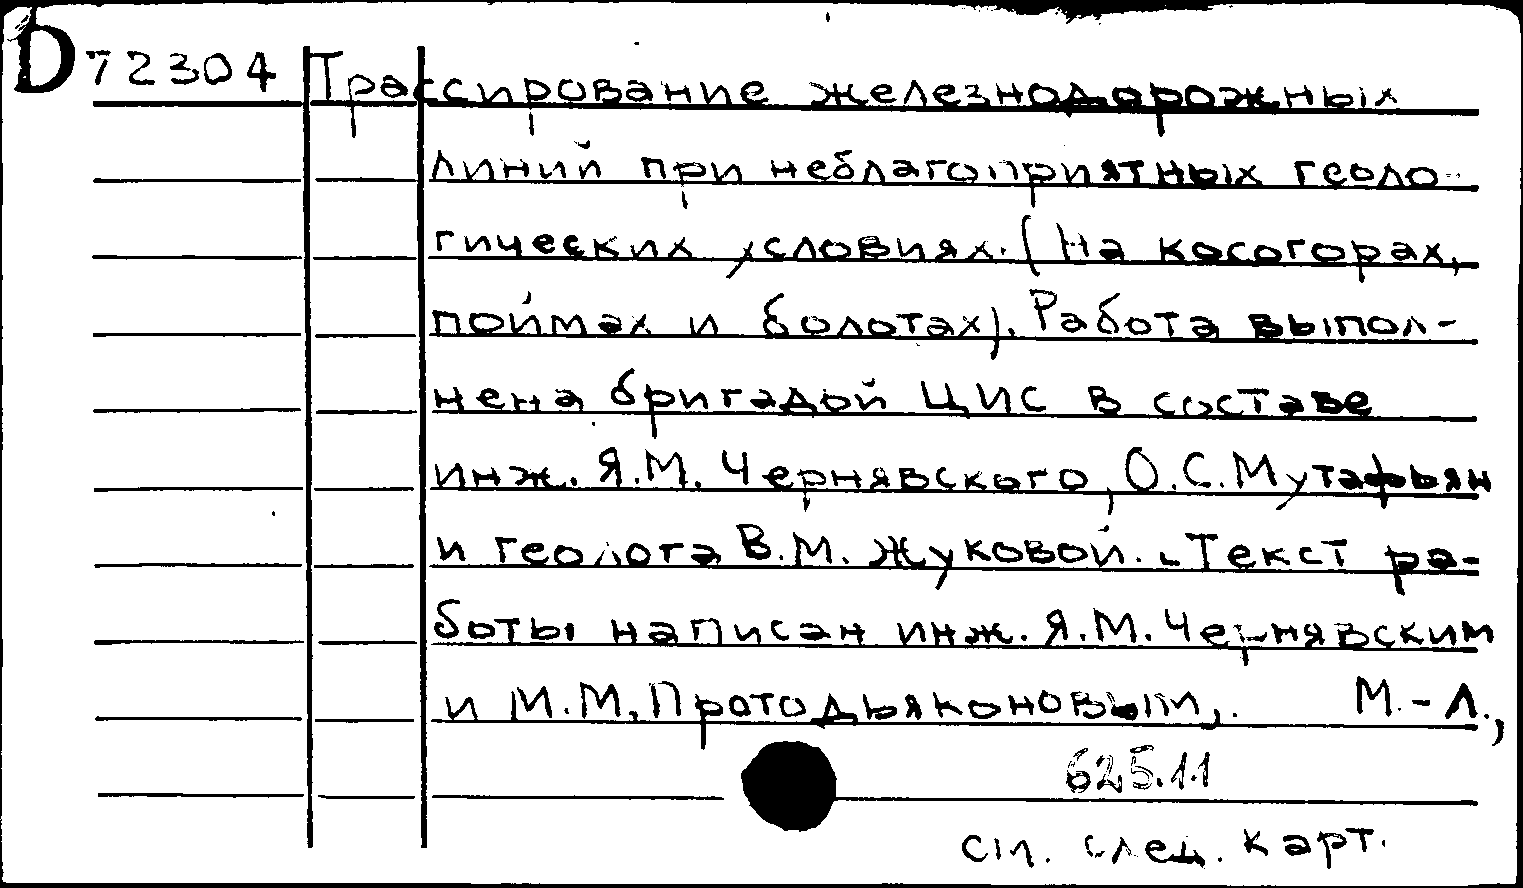 D72304 Трассирование железнодорожных
линий при неблагоприятных геоло-
гических условиях. (На косогорах,
поймах и болотах). Работа выпол-
нена бригадой ЦИС в составе
инж. Я.М. Чернявского, О.С. Мутафьян
и геолога В.М. Жуковой. Текст ра-
боты написан инж. Я.М. Чернявским
и М.М. Протодьяконовым,. М.-Л.,
625.11
см. след. карт.